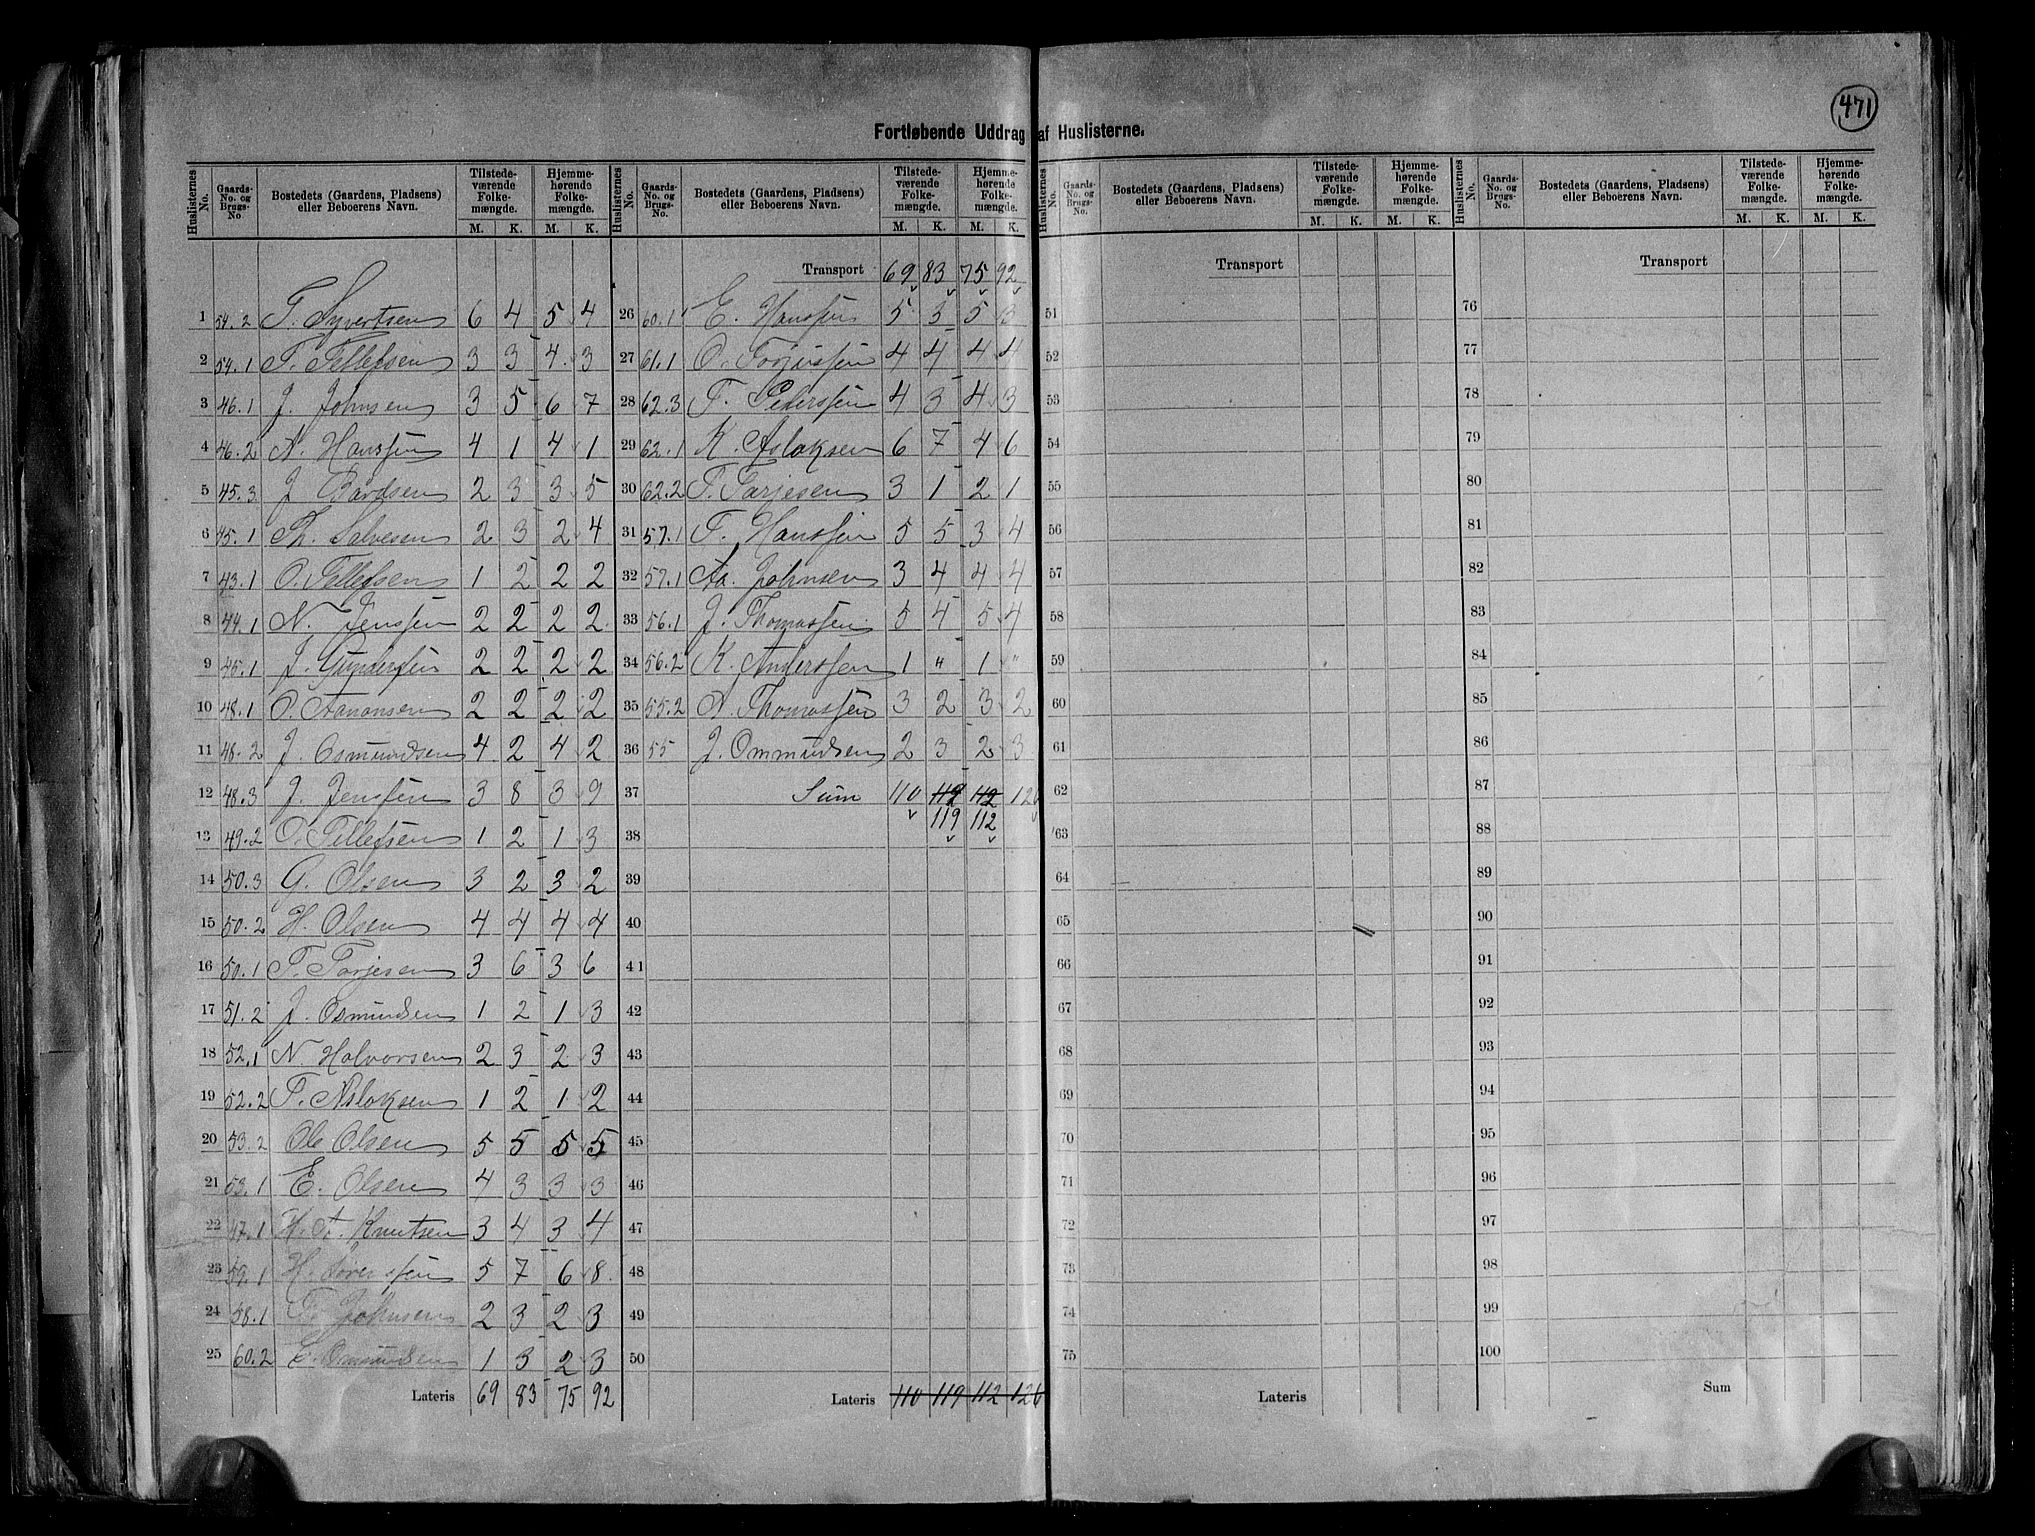 471
Fortløbende Uddrag af Huslisterne.
Huslisternes No. Gaards-No. og Brugs-No Bostedets (Gaardens, Pladsens) eller Beboerens Navn. Tilstedeværende Folkemængde. M. K. Hjemmehørende Folkemængde. M. K.
1 54.2 T. Syvertsen 6 4 5 4
2 54.1 T. Tellefsen 3 3 4 3
3 46.1 J. Johnsen 3 5 6 7
4 46.2 N. Hanssen 4 1 4 1
5 45.3 J Bårdsen 2 3 3 5
6 45.1 Th. Salvesen 2 3 2 4
7 43.1 O. Tellefsen 1 2 2 2
8 44.1 N. Jenssen 2 2 2 2
9 45.1 J. Gundersen 2 2 2 2
10 48.1 O. Aanonsen 2 2 2 2
11 48.2 J. Osmundsen 4 2 4 2
12 48.3 J. Jenssen 3 8 3 9
13 49.2 O. Tellefsen 1 2 1 3
14 50.3 G. Olsen 3 2 3 2
15 50.2 H. Olsen 4 4 4 4
16 50.1 T. Tarjesen 3 6 3 6
17 51.2 J. Osmundsen 1 2 1 3
18 52.1 N Halvorsen 2 3 2 3
19 52.2 T. Aslaksen 1 2 1 2
20 53.2 Ole Olsen 5 5 5 5
21 53.1 E. Olsen 4 3 3 3
22 47.1 H. A. Knutsen 3 4 3 4
23 59.1 H. Sørenssen 5 7 6 8
24 58.1 Johnsen 2 3 2 3
25 60.2 Ommundsen 1 3 2 3
Lateris 69 83 75 92
Huslisternes No. Gaards-No. og Brugs-No. Bostedets (Gaardens, Pladsens) eller Beboerens Navn. Tilstedeværende Folkemængde. M. K. Hjemmehørende Folkemængde. M. K.
Transport 69 83 75 92
26 60.1 E. Hanssen 5 3 5 3
27 61.1 O. Torjussen 4 4 4 4
28 62.3 T. Pederssen 4 3 4 3
29 62.1 K. Aslaksen 6 7 4 6
30 62.2 T. Tarjesen 3 1 2 1
31 57.1 T. Hanssen 5 5 3 4
32 57.1 Aa. Johnsen 3 4 4 4
33 56.1 J. Thomassen 5 4 5 4
34 56.2 K. Anderssen 1 " 1 "
35 55.2 N. Thomassen 3 2 3 2
36 55 J. Ommundsen 2 3 2 3
37 Sum 110 112 112 126
119 112
38
39
40
41
42
43
44
45
46
47
48
49
50
Lateris 110 119 112 126
Huslisternes No. Gaards-No. og Brugs-No. Bostedets (Gaardens, Pladsens) eller Beboerens Navn. Tilstedeværende Folkemængde. M. K. Hjemmehørende Folkemængde. M. K.
Transport
51
52
53
54
55
56
57
58
59
60
61
62
63
64
65
66
67
68
69
70
71
72
73
74
75
Lateris
Huslisternes No. Gaards-No. og Brugs-No. Bostedets (Gaardens, Pladsens) eller Beboerens Navn. Tilstedeværende Folkemængde. M. K. Hjemmehørende Folkemængde. M. K.
Transport
76
77
78
79
80
81
82
83
84
85
86
87
88
89
90
91
92
93
94
95
96
97
98
99
100
Sum